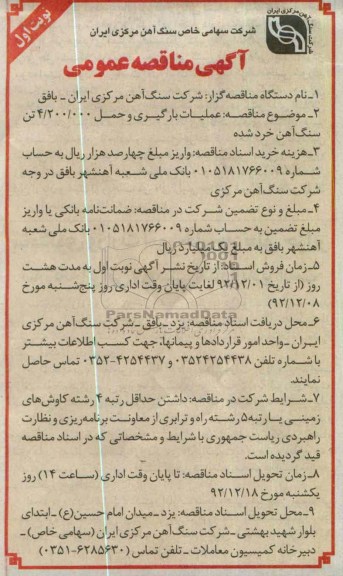 نوبت اول
شرکت سنگ آهن مرکزی ایران
شرکت سهامی خاص سنگ آهن مرکزی ایران
آگهی مناقصه عمومی
۱-نام دستگاه مناقصه گزار: شرکت سنگ آهن مرکزی ایران - بافق
۲- موضوع مناقصه: عملیات بارگیری و حمل ۴/۲۰۰/۰۰۰ تن
سنگ آهن خرد شده
۳-هزینه خرید اسناد مناقصه: واریز مبلغ چهارصد هزار ریال به حساب
شماره ۰۱۰۵۱۸۱۷۶۶۰۰۹ بانک ملی شعبه آهنشهر بافق در وجه
شرکت سنگ آهن مرکزی
۴- مبلغ و نوع تضمین شرکت در مناقصه: ضمانت‌نامه بانکی یا واریز
مبلغ تضمین به حساب شماره ۰۱۰۵۱۸۱۷۶۶۰۰۹ بانک ملی شعبه
آهنشهر بافق به مبلغ یک میلیارد ریال
۵-زمان فروش اسناد: از تاریخ نشر آگهی نوبت اول به مدت هشت
روز (از تاریخ ۹۲/۱۲/۰۱ لغایت پایان وقت اداری روز پنج‌شنبه مورخ
۹۲/۱۲/۰۸)
۶-محل دریافت اسناد مناقصه: یزد - بافق - شرکت سنگ آهن مرکزی
ایران - واحد امور قراردادها و پیمانها، جهت کسب اطلاعات بیشتر
با شماره تلفن ۰۳۵۲۴۲۵۴۴۳۸ و ۴۲۵۴۴۳۷-۰۳۵۲ تماس حاصل
نمایند.
۷-شرایط شرکت در مناقصه: داشتن حداقل رتبه ۴ رشته کاوش‌های
زمینی یا رتبه ۵ رشته راه و ترابری از معاونت برنامه‌ریزی و نظارت
راهبردی ریاست جمهوری با شرایط و مشخصاتی که در اسناد مناقصه
قید گردیده است.
۸-زمان تحویل اسناد مناقصه: تا پایان وقت اداری (ساعت ۱۴) روز
یکشنبه مورخ ۹۲/۱۲/۱۸
۹- محل تحویل اسناد مناقصه: یزد - میدان امام حسین(ع) - ابتدای
بلوار شهید بهشتی - شرکت سنگ آهن مرکزی ایران (سهامی خاص) -
دبیرخانه کمیسیون معاملات - تلفن تماس (۶۲۸۵۶۳۰-۰۳۵۱)
ParsNamadData